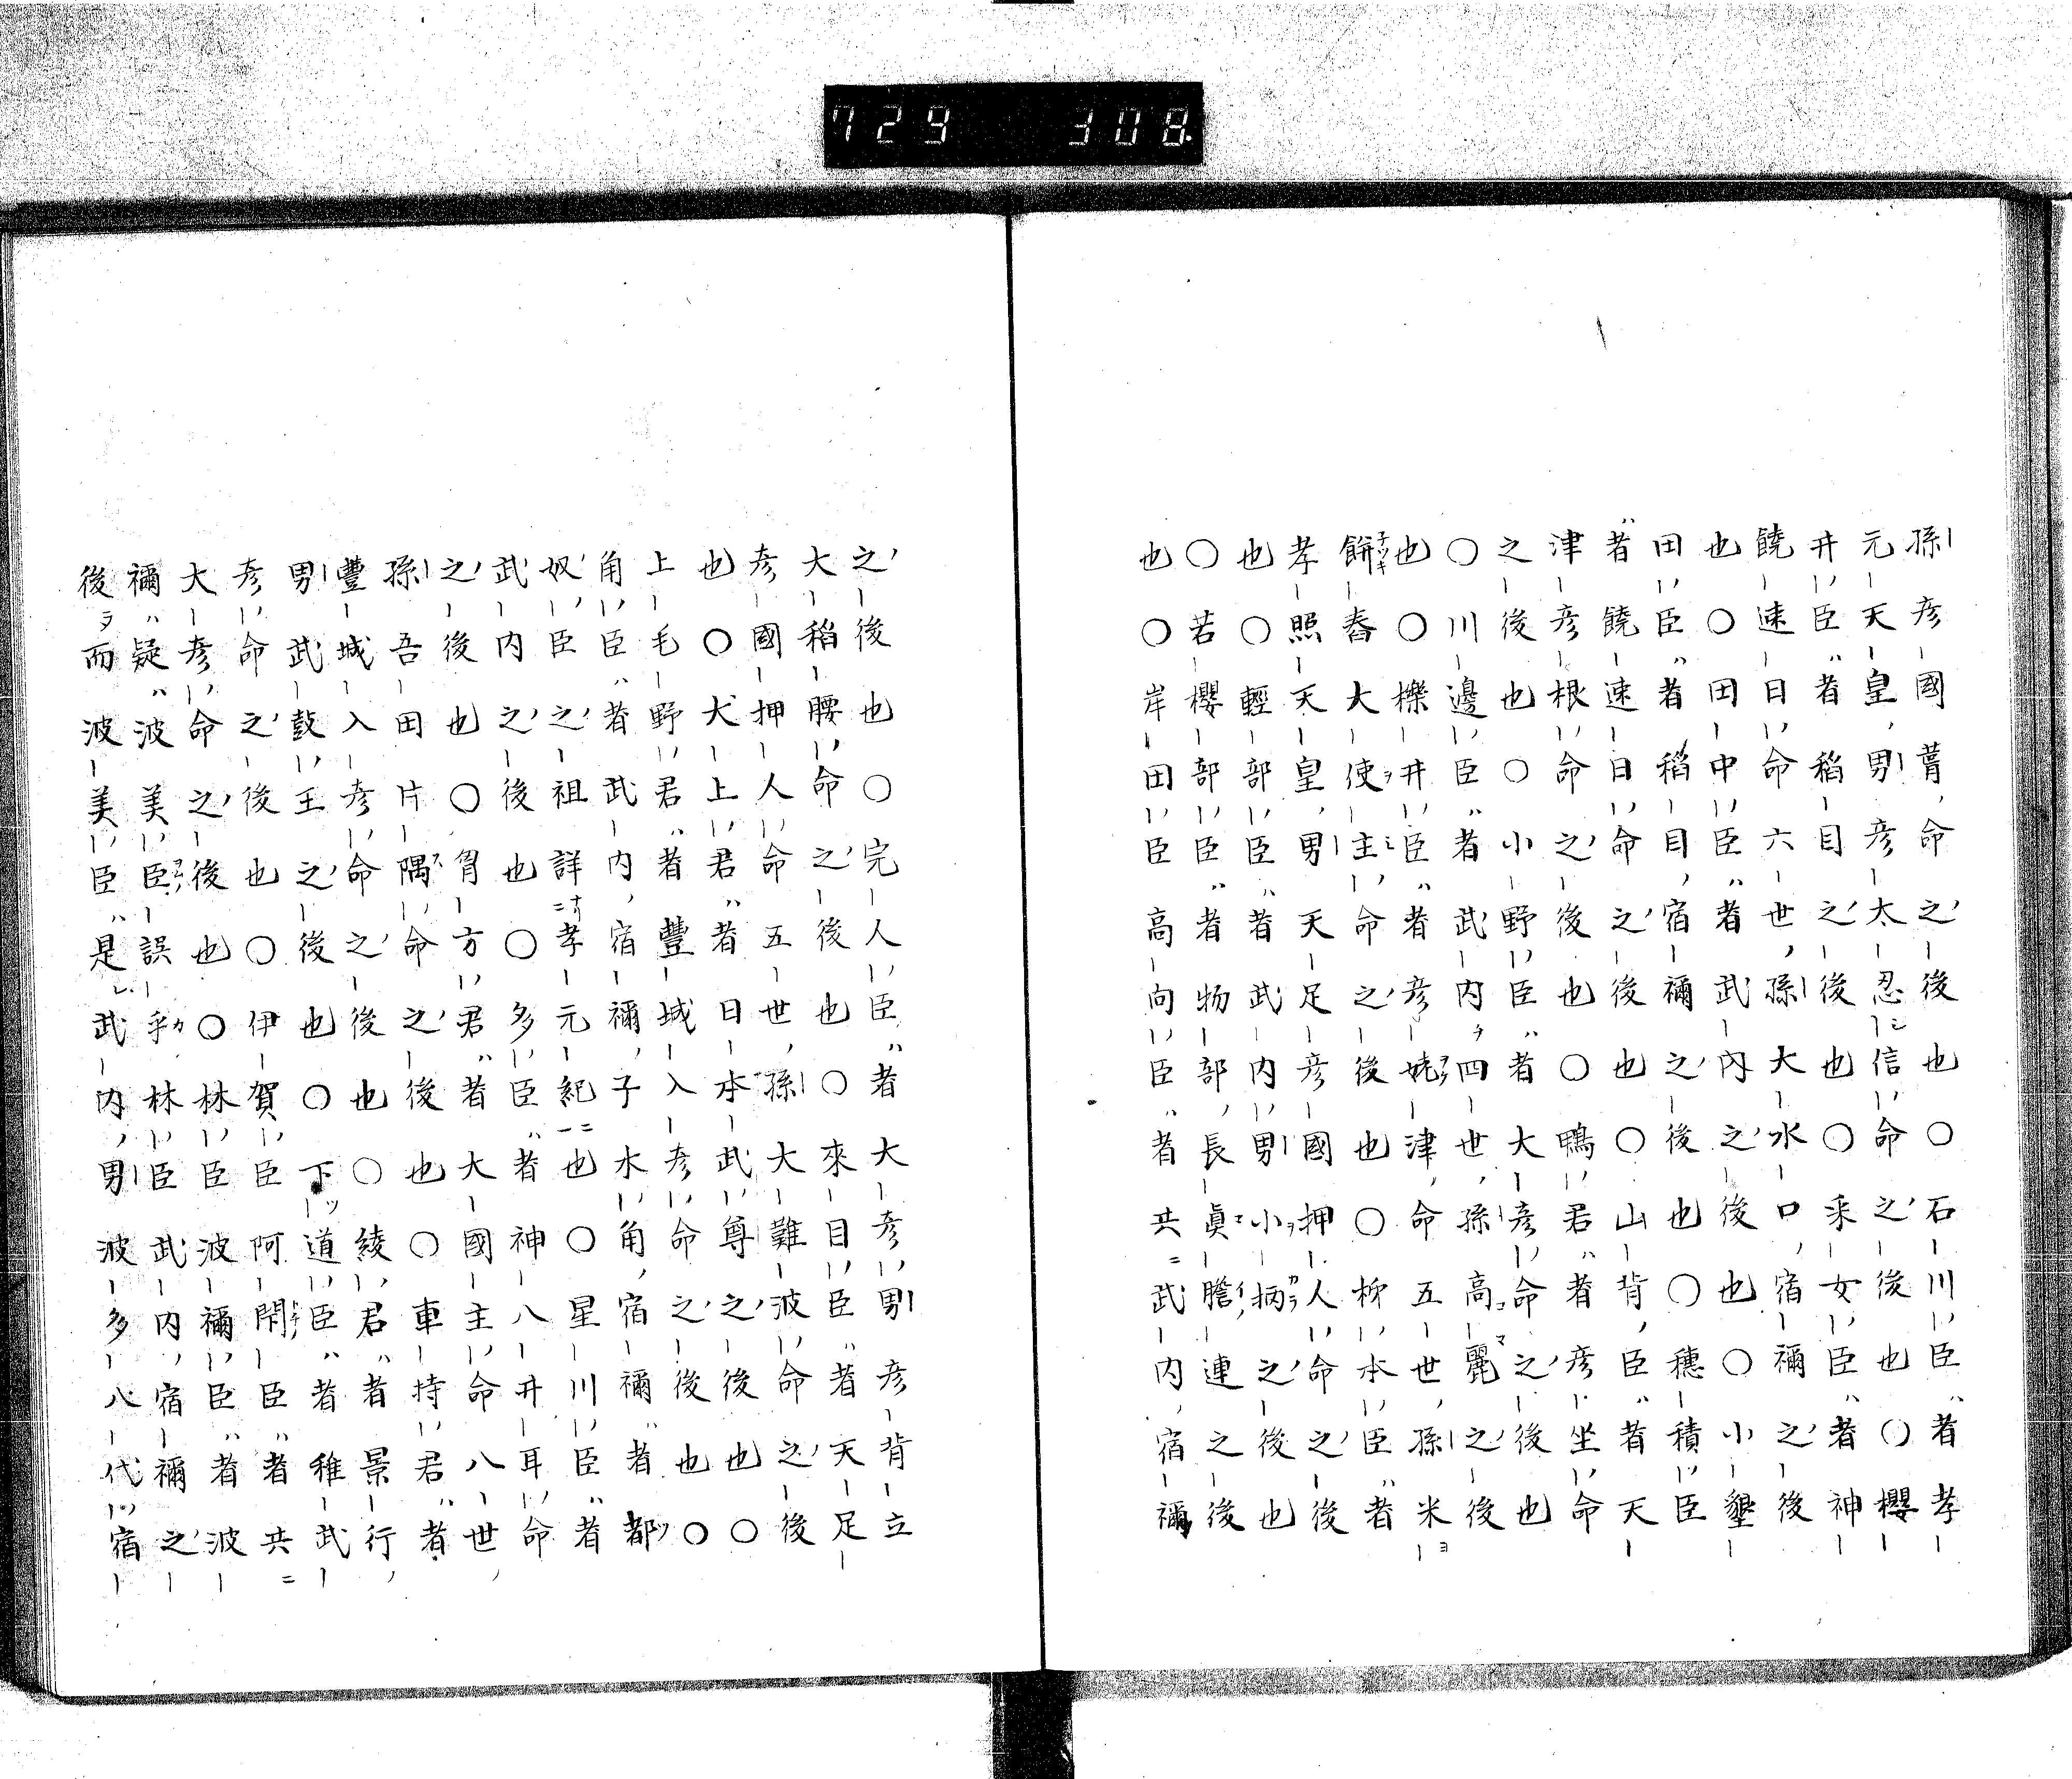 729 308
孫彦國葺命之後也〇石川臣者孝
元天皇男彦太忍信命之後也〇櫻
井臣者稻目之後也〇釆女臣者神
饒速日命六世孫大水口宿禰之後
也〇田中臣者武內之後也〇小墾
田臣者稻目宿禰之後也〇穗積臣
者饒速日命之後也〇山背臣者天
津彦根命之後也〇鴨君者彦坐命
之後也〇小野臣者大彦命之後也
〇川邊臣者武内四世孫高麗之後
也〇櫟井臣者彦姥津命五世孫米
餅舂大使主命之後也〇柳本臣者
孝照天皇男天足彦國押人命之後
也〇輕部臣者武内男小柄之後也
〇若櫻部臣者物部長眞膽連之後
也〇岸田臣高向臣者共武内宿禰
之後也〇完人臣者大彦男彦背立
大稻腰命之後也〇來目臣者天足
彦國押人命五世孫大難波命之後
也〇犬上君者日本武尊之後也〇
上毛野君者豐城入彦命之後也〇
角臣者武内宿禰子木角宿禰者都
奴臣之祖詳孝元紀也〇星川臣者
武内之後也〇多臣者神八井耳命
之後也〇胷方君者大國主命八世
孫吾田片隅命之後也〇車持君者
豐城入彦命之後也〇綾君者景行
男武鼓王之後也〇下道臣者稚武
彦命之後也〇伊賀臣阿閇臣者共
大彦命之後也〇林臣波禰臣者波
禰疑波美臣誤乎林臣武内宿禰之
後而波美臣是武内男波多八代宿